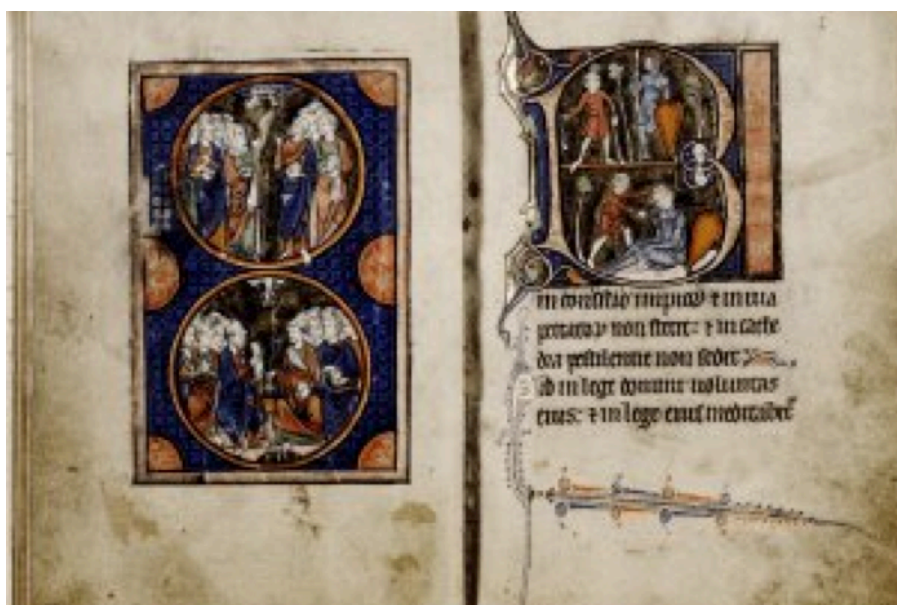 B
in consilio impiorum & in uia
peccatorum non stetit: & in cathe
dra pestilentie non sedit
Sed in lege domini uoluntas
eius: & in lege eius meditabit